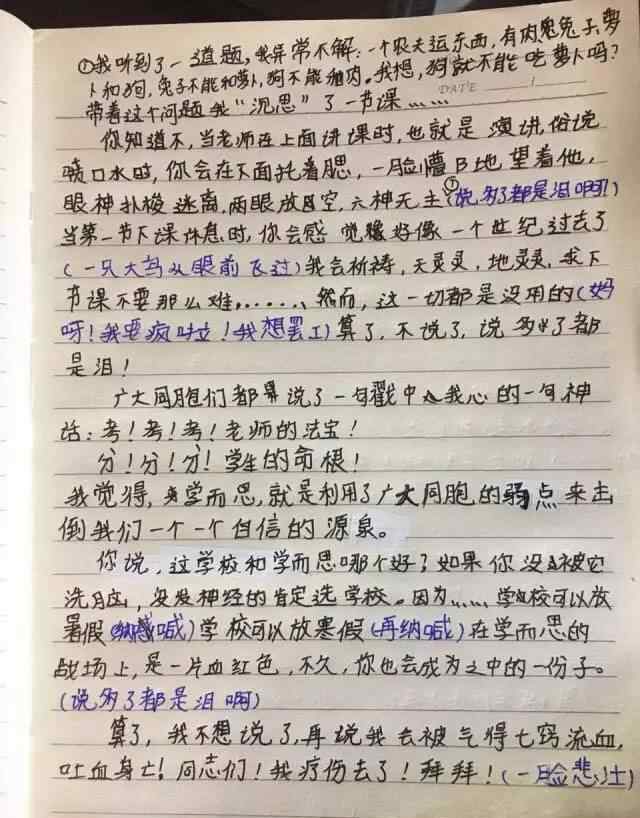 ①我听到了一道题，我异常不解：一个农夫运东西，有肉兔子，萝
卜和狗，兔子不能和萝卜，狗不能和肉。我想，狗就不能吃萝卜吗？
DATE
带着这个问题我“沉思”了一节课……
你知道不，当老师在上面讲课时，也就是演讲，俗说
喷口水时，你会在下面托着腮，一脸懵B地望着他，
眼神扑梭迷离，两眼放空，六神无主①（说多了都是泪啊！）
当第一节下课休息时，你会感觉好像一个世纪过去了
（一只大鸟从眼前飞过）我会祈祷，天灵灵，地灵灵，求下
节课不要那么难，……，然而，这一切都是没用的（妈
呀！我要疯啦！我想罢工）算了，不说了，说多了都
是泪！
广大同胞们都说了一句戳中我心的一句神
话：考！考！考！老师的法宝！
分！分！分！学生的命根！
我觉得，学而思，就是利用了广大同胞的弱点来击
倒我们一个一个自信的源泉。
你说，这学校和学而思哪个好？如果你没被它
洗脑，没发神经的肯定选学校。因为……学校可以放
暑假（呐喊）学校可以放寒假（再纳喊）在学而思的
战场上，是一片血红色，不久，你也会成为之中的一份子。
（说多了都是泪啊）
算了，我不想说了，再说我会被气得七窍流血，
吐血身亡！同志们！我疗伤去了！拜拜！（一脸悲壮）